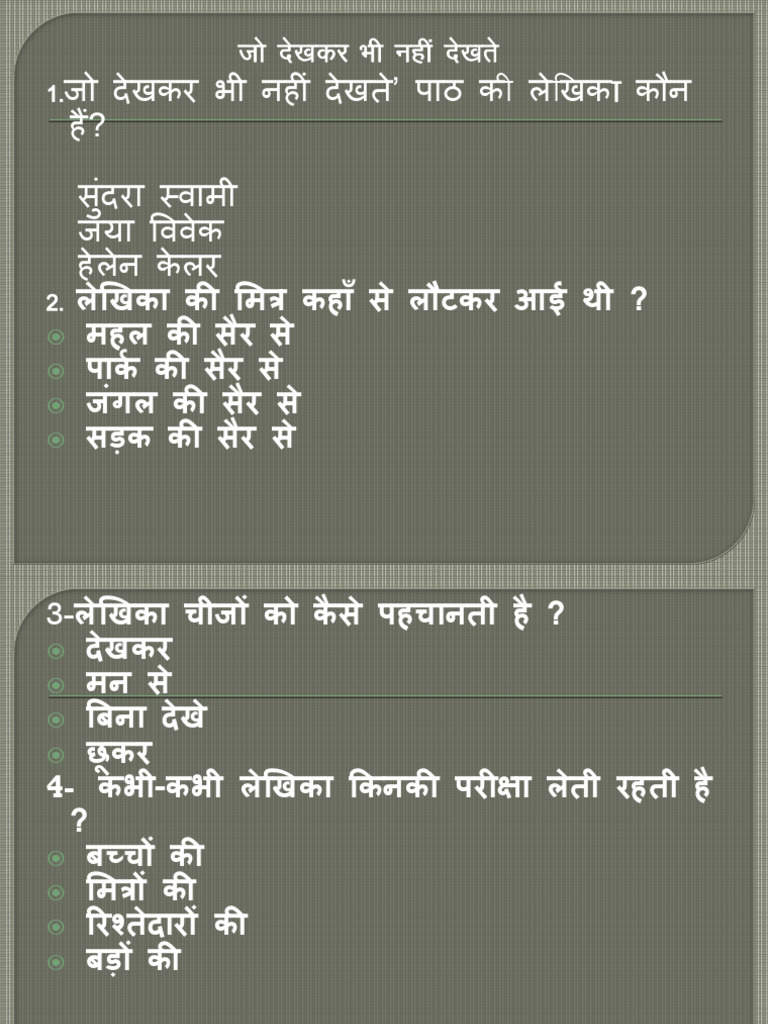 जो देखकर भी नहीं देखते
1.जो देखकर भी नहीं देखते’ पाठ की लेखिका कौन
हैं?
सुंदरा स्वामी
जया विवेक
हेलेन केलर
2. लेखिका की मित्र कहाँ से लौटकर आई थी ?
महल की सैर से
पार्क की सैर से
जंगल की सैर से
सड़क की सैर से
3-लेखिका चीजों को कैसे पहचानती है ?
देखकर
मन से
बिना देखे
छूकर
4- कभी-कभी लेखिका किनकी परीक्षा लेती रहती है
?
बच्चों की
मित्रों की
रिश्तेदारों की
बड़ों की